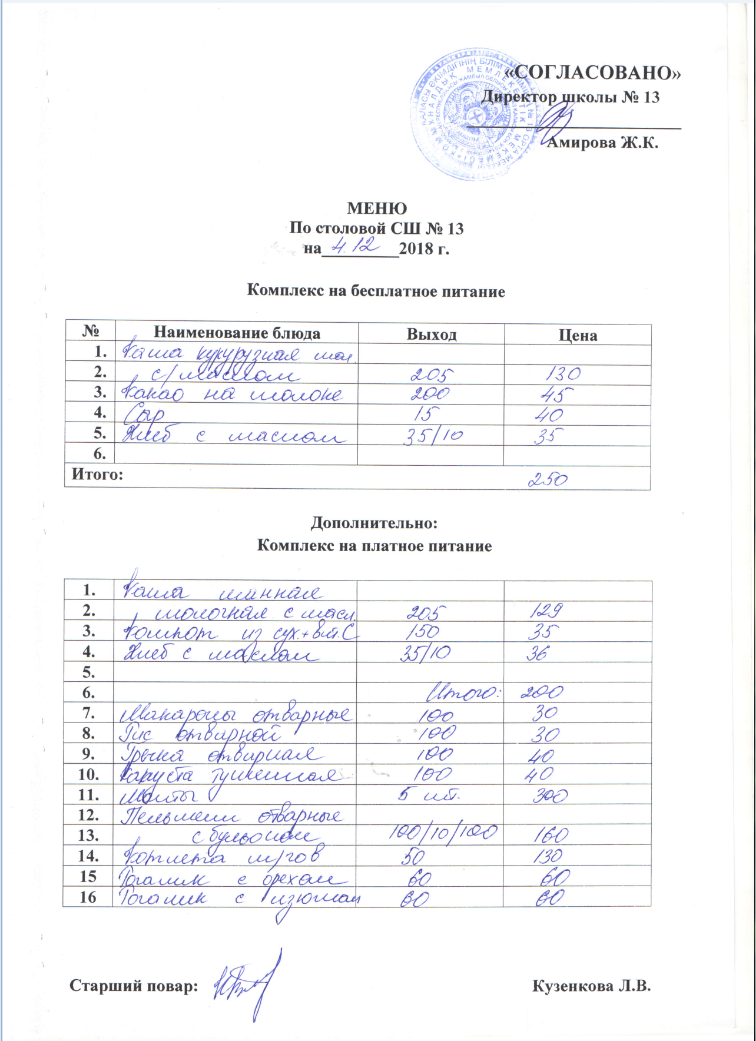 «СОГЛАСОВАНО»
Директор школы № 13
Амирова Ж.К.
МЕНЮ
По столовой СШ № 13
на 4.12 2018 г.
Комплекс на бесплатное питание
№ Наименование блюда Выход Цена
1. Каша кукурузная мол.
2. с/маслом 205 130
3. Какао на молоке 200 45
4. Сыр 15 40
5. Хлеб с маслом 35/10 35
6.
Итого: 250
Дополнительно:
Комплекс на платное питание
1. Каша
2. молочная с масл. 205 129
3. Компот из сух.+вит С 150 35
4. Хлеб с маслом 35/10 36
5.
6. Итого: 200
7. Макароны отварные 100 30
8. Рис отварной 100 30
9. Гречка отварная 100 40
10. Капуста тушенная 100 40
11. Манты 5 шт. 300
12. Пельмени отварные
13. с бульоном 100/10/100 160
14. Котлета м/гов 50 130
15 Рогалик с орехом 60 60
16 Рогалик с изюмом 60 60
Старший повар: Кузенкова Л.В.